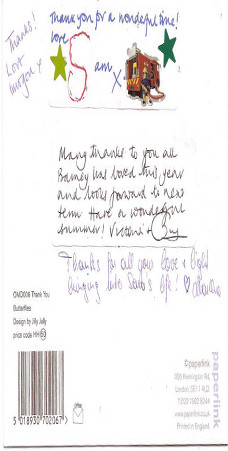 Thanks!
Love
Imogen x
Thank you for a wonderful time!
love
Sam x
Many thanks to you all
Barney has loved this year
and looks forward to next
term Have a wonderful
summer! Victoria +
Thanks for all your love + light
bringing into Saba's life! ♡
GND008 Thank You
Butterflies
Design by Jilly Jelly
price code HH50
5 018930 702067 >
paperlink
©paperlink
356 Kennington Rd,
London, SE11 4LD
T 020 7582 8244
www.paperlink.co.uk
Printed in England